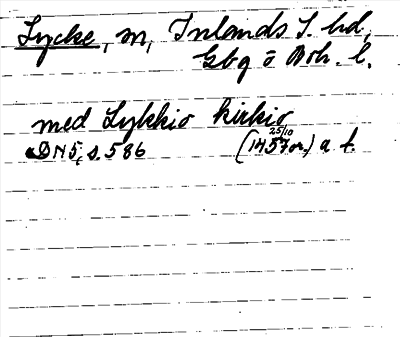 Lycke, m, Inlands S. hd,
Gbg o Boh. l.
med Lykkio kirkio
DN 5, s. 586 (25/10 1457 or.) a. f.